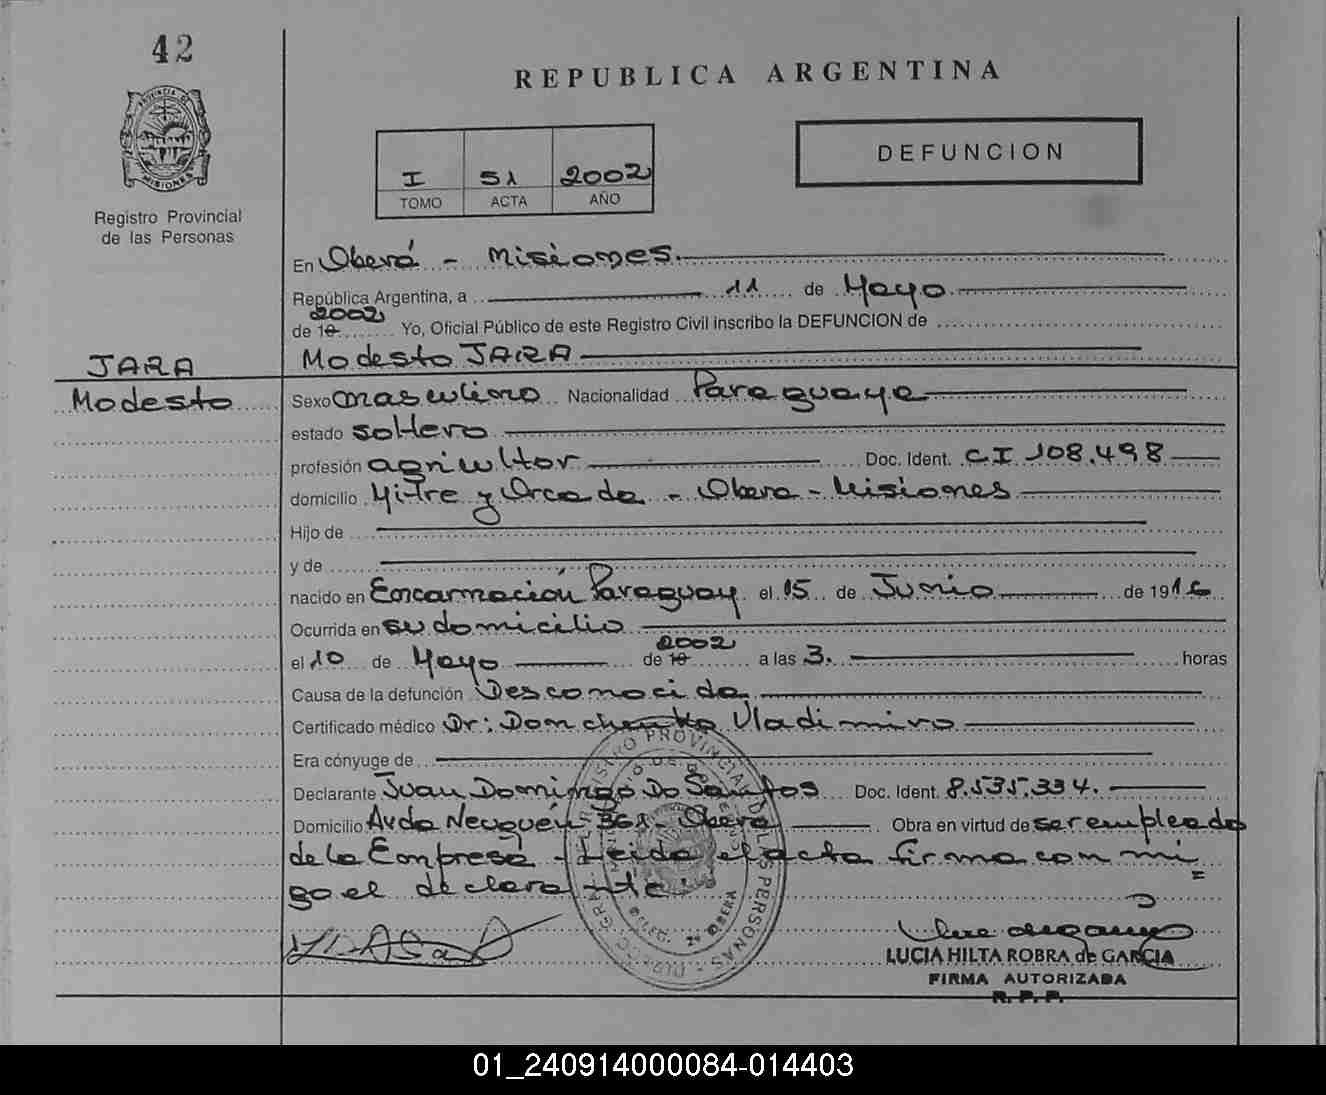 42
REPUBLICA ARGENTINA
PROVINCIA DE
MISIONES
Registro Provincial
de las Personas
I 51 2002
TOMO ACTA AÑO
DEFUNCION
En Oberá - Misiones.
República Argentina, a 11 de Mayo
2002
de 19 Yo, Oficial Público de este Registro Civil inscribo la DEFUNCION de
JARA Modesto JARA
Modesto Sexo masculino Nacionalidad Paraguaya
estado soltero
profesión agricultor Doc. Ident. CI 108.498
domicilio Mitre y Orcada - Obera - Misiones
Hijo de
y de
nacido en Encarnación Paraguay el 15 de Junio de 1916
Ocurrida en su domicilio
2002
el 10 de Mayo de 19 a las 3. horas
Causa de la defunción Desconocida
Certificado médico Dr: Domchenko Vladimiro
Era cónyuge de
Declarante Juan Domingo Do Santos Doc. Ident. 8.535.334.
Domicilio Avda Neuquén 361 - Obera Obra en virtud de ser empleado
de la Empresa - Leida el acta firma con mi
go el declarante.
LUCIA HILTA ROBRA de GARCIA
FIRMA AUTORIZADA
R. P. P.
01_240914000084-014403